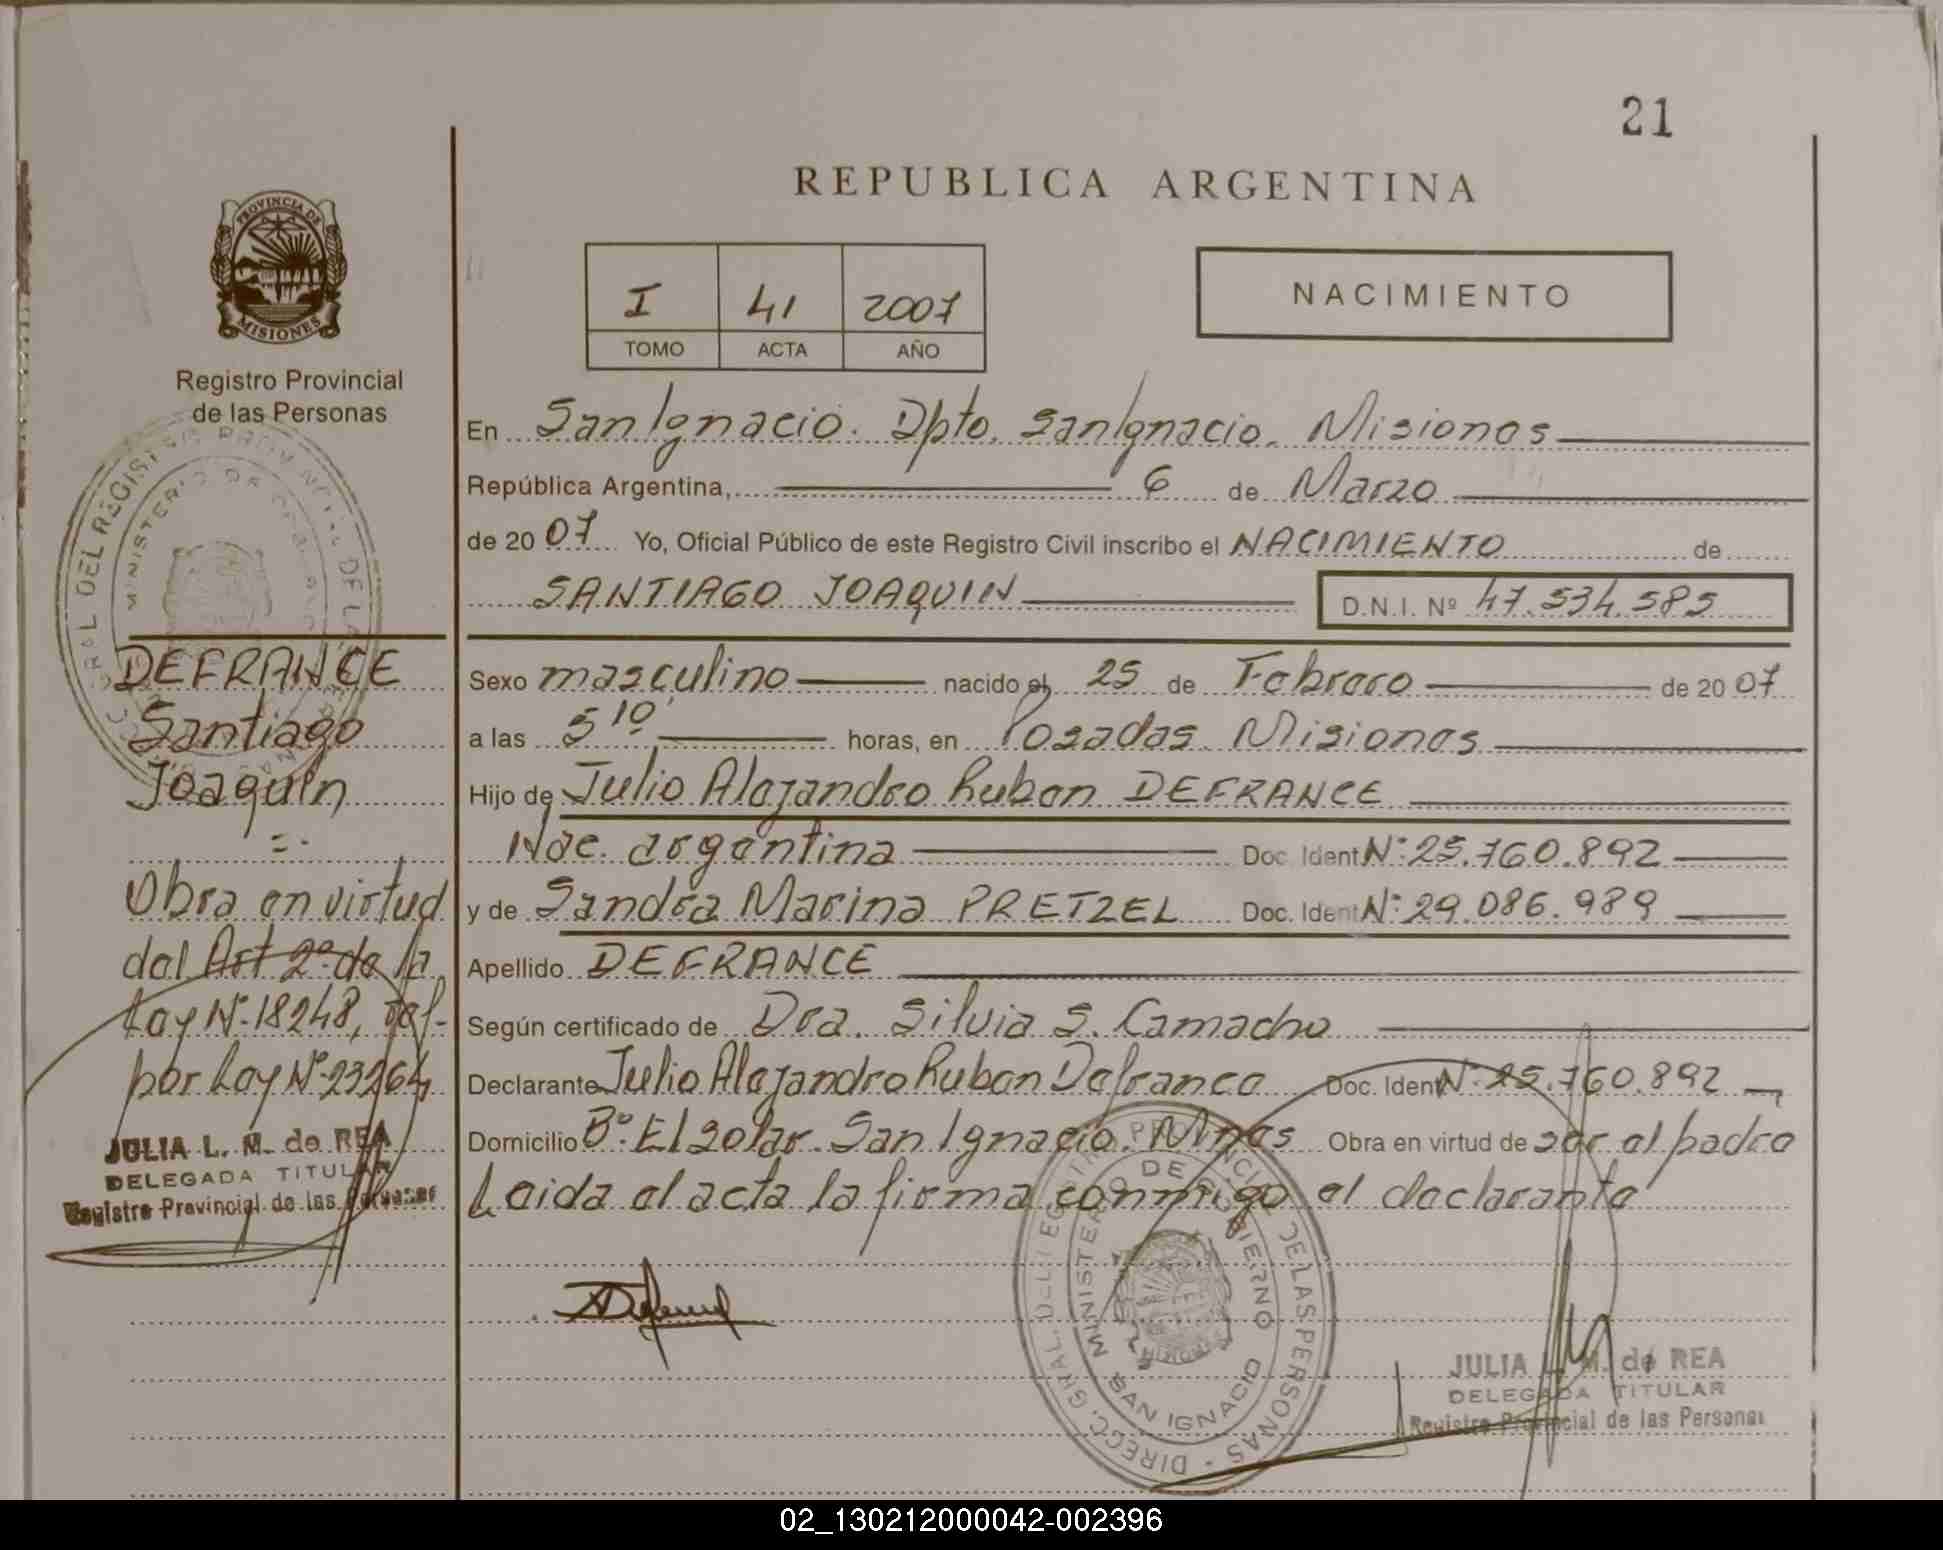 21
REPUBLICA ARGENTINA
PROVINCIA DE
MISIONES
Registro Provincial
de las Personas
I 41 2007
TOMO ACTA AÑO
NACIMIENTO
En San Ignacio. Dpto. San Ignacio. Misiones
República Argentina, 6 de Marzo
de 20 07 Yo, Oficial Público de este Registro Civil inscribo el NACIMIENTO de
SANTIAGO JOAQUIN D.N.I. Nº 47.534.585
DEFRANCE
Santiago
Joaquín
Obra en virtud
del Art 2º de la
Ley Nº 18248,
por Ley Nº 23264
JULIA L. M. de REA
DELEGADA TITULAR
Registro Provincial de las Personas
Sexo masculino nacido el 25 de Febrero de 20 07
a las 5 10' horas, en Posadas. Misiones
Hijo de Julio Alejandro Ruben DEFRANCE
Nac. argentina Doc. Ident. Nº: 25.760.892
y de Sandra Marina PRETZEL Doc. Ident. Nº: 29.086.989
Apellido DEFRANCE
Según certificado de Dra. Silvia S. Camacho
Declarante Julio Alejandro Ruben Defrance Doc. Ident. Nº: 25.760.892
Domicilio Bº: El solar. San Ignacio. Mnes Obra en virtud de ser el padre
Leida el acta la firma conmigo el declarante
DIRECC. GRAL. DEL REGISTRO PROVINCIAL DE LAS PERSONAS
MINISTERIO DE GOBIERNO
SAN IGNACIO
JULIA L. M. de REA
DELEGADA TITULAR
Registro Provincial de las Personas
02_130212000042-002396